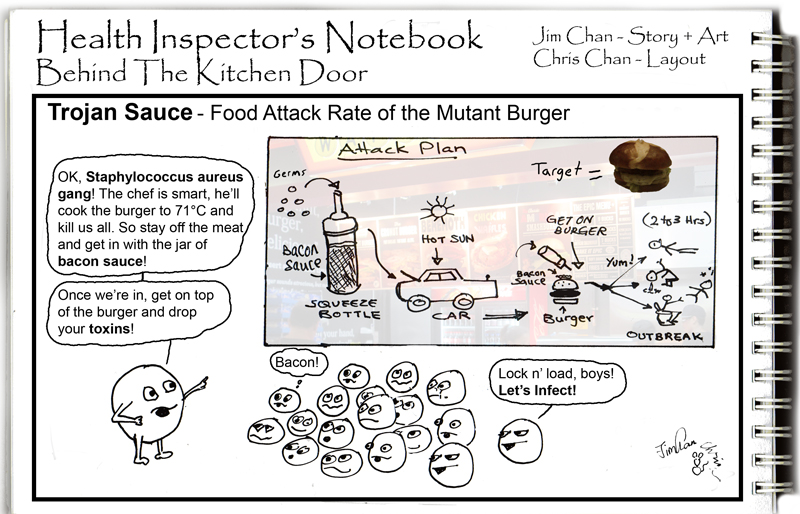 Health Inspector's Notebook
Behind The Kitchen Door
Jim Chan - Story + Art
Chris Chan - Layout
Trojan Sauce - Food Attack Rate of the Mutant Burger
OK, Staphylococcus aureus
gang! The chef is smart, he'll
cook the burger to 71°C and
kill us all. So stay off the meat
and get in with the jar of
bacon sauce!
Once we're in, get on top
of the burger and drop
your toxins!
Attack Plan
Target =
Germs
Bacon
Sauce
SQUEEZE
BOTTLE
HOT SUN
CAR
GET ON
BURGER
Bacon
Sauce
Burger
Yum!
(2 to 3 Hrs)
OUTBREAK
Bacon!
Lock n' load, boys!
Let's Infect!